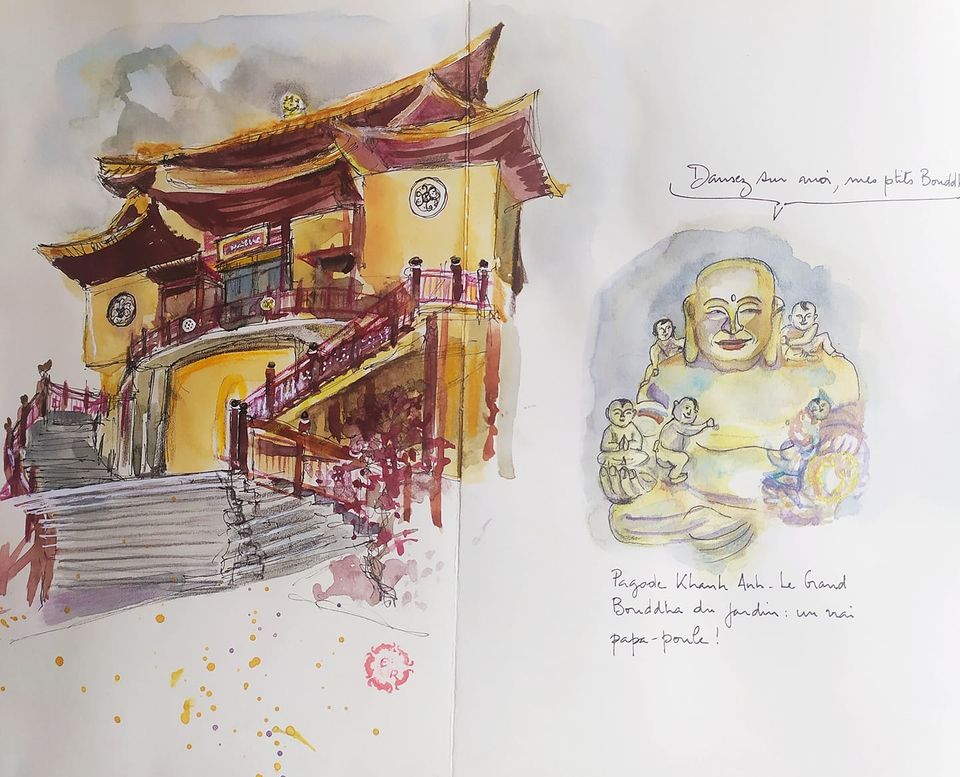 Dansez sur moi, mes ptits Bouddh
Pagode Khanh Anh - Le Grand
Bouddha du jardin : un vrai
papa-poule !
E R